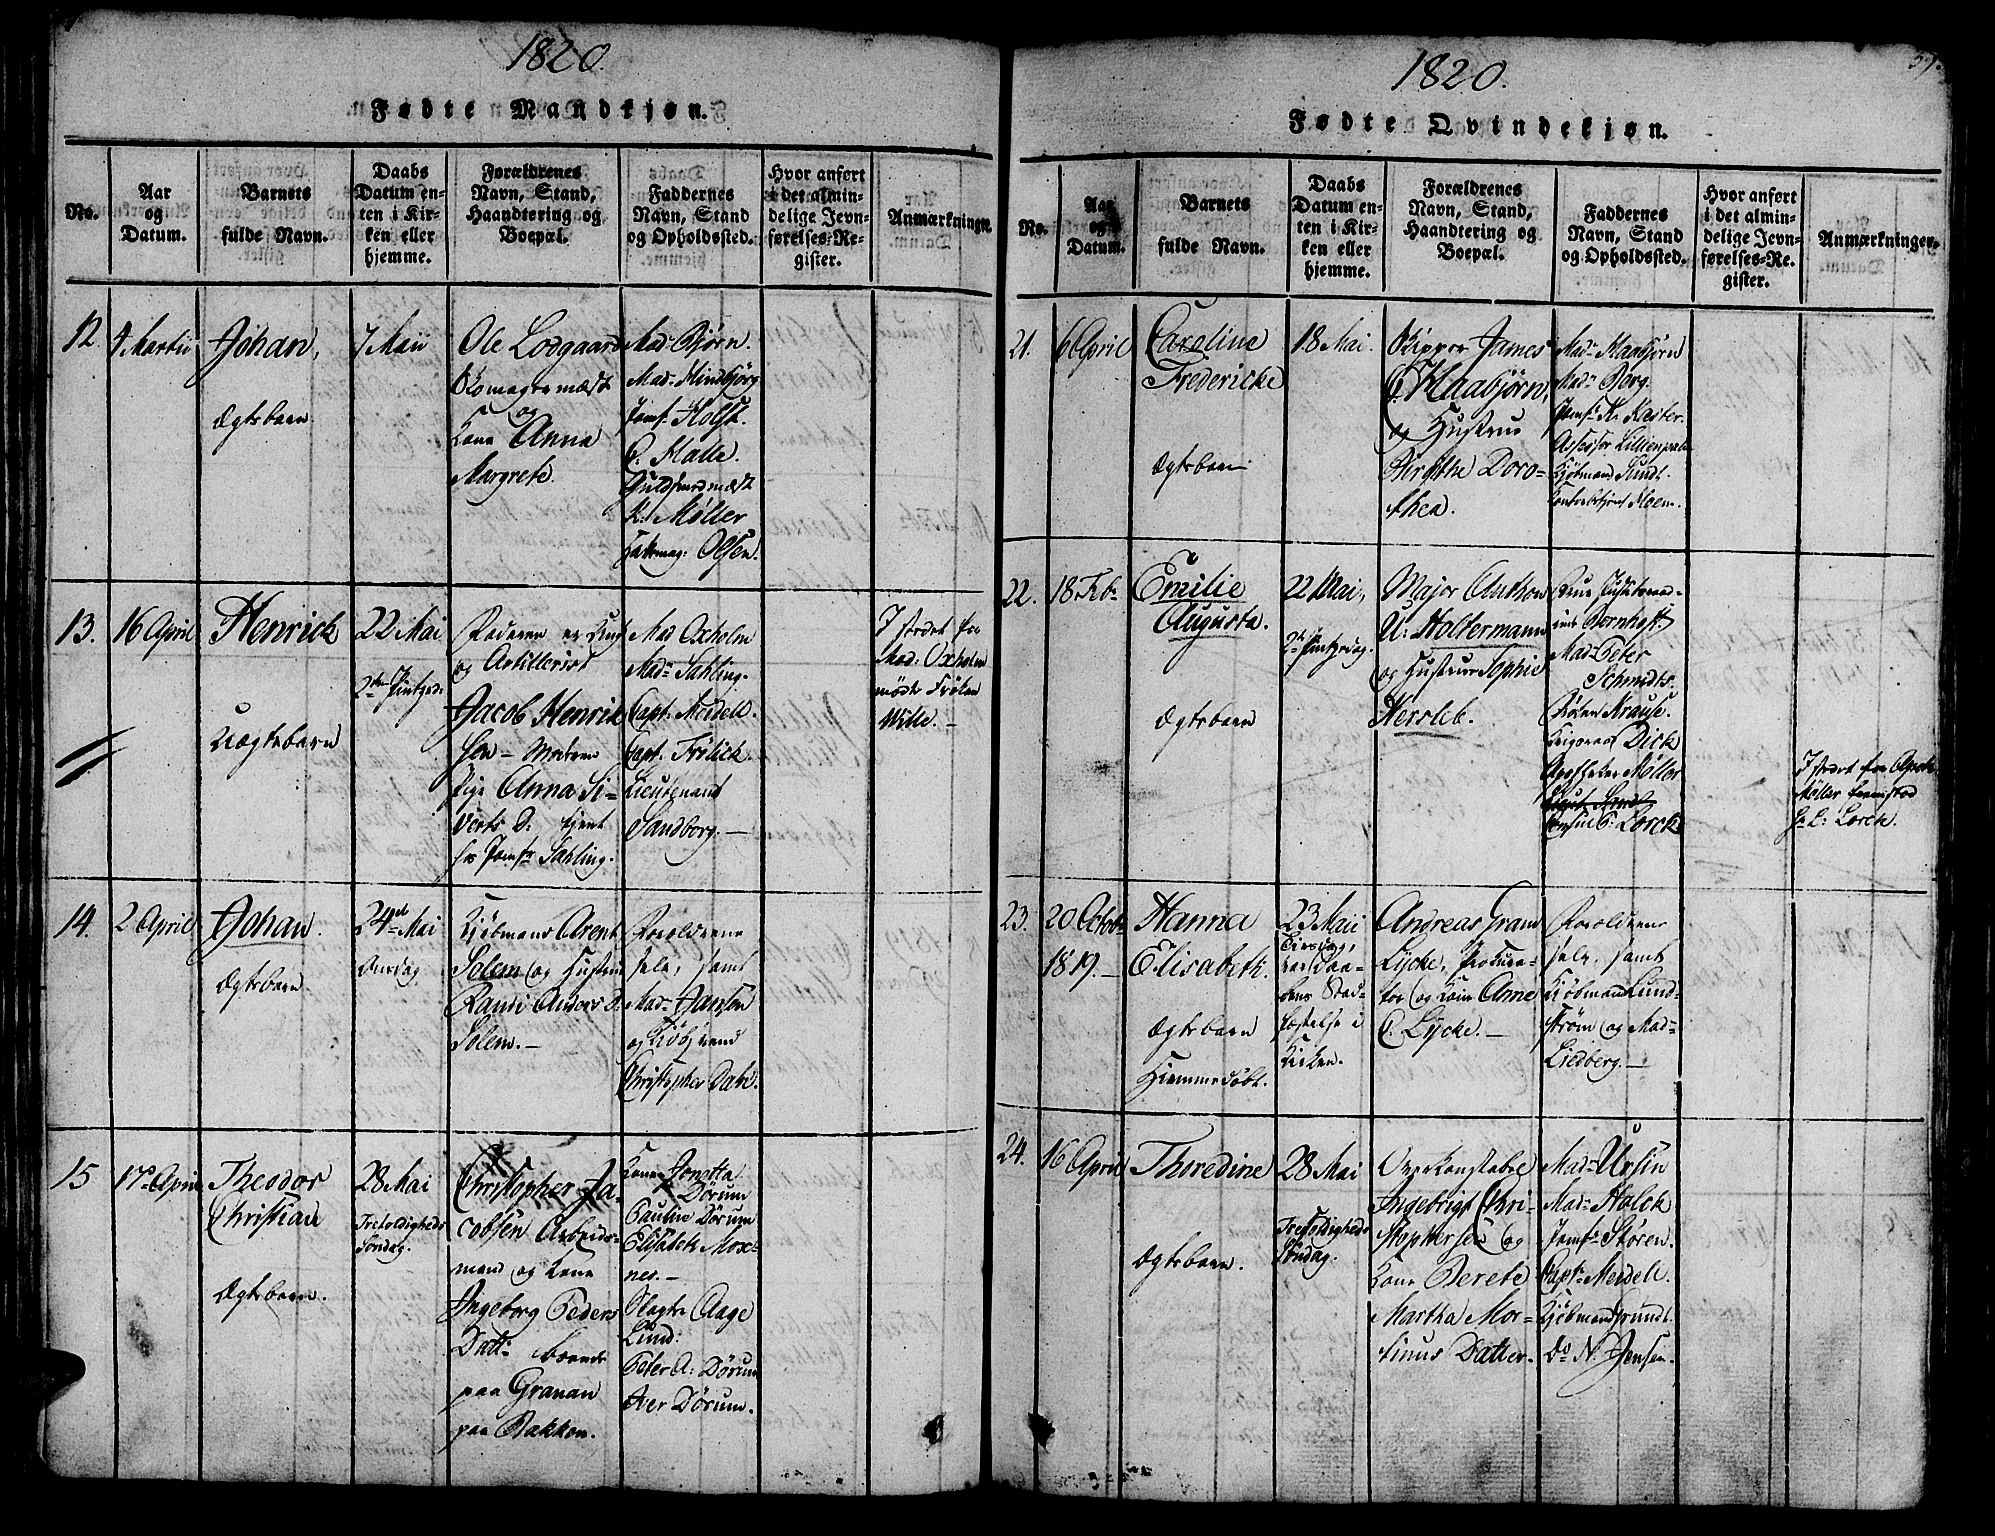 1820.
Fødte Mandkjøn.
No.
Aar
og
Datum.
Barnets
fulde Navn.
Daabs
Datum en-
ten i Kir-
ken eller
hjemme.
Forældrenes
Navn, Stand,
Haandtering og
Boepæl.
Faddernes
Navn, Stand
og Opholdssted.
Hvor anført
i det almin-
delige Jevn-
førelses-Re-
gister.
Anmærkninger.
12.
4 Martii
Johan,
Ægtebarn.
7 Maii
Ole Lodgaard
og
Kone Anna
Margrete.
Mad: Bjørn.
Jomf: Holst.
C. Halle.
K: Møller
Olsen.
13.
16 April
Henrick
Uægtebarn
22 Mai
2den Pintsed:
Faderen er Ung
og Artillerist
Jacob Henrik
sen - Moderen
Pige Anna Si-
verts D: tjent
hos Jomfr Sahling.
Mad Oxholm
Mad: Sahling.
Capt: Meidell.
Capt: Frölich.
Lieutenant
Sandborg. -
I stedet for
Mad: Oxholm
mödte Fröken
Wille. -
14.
2 April
Johan.
Ægtebarn.
24de Mai
Onsdag
Kjöbmand Arent
Solem og Hustrue
Randi Anders D.
Solem. -
Forældrene
selv, samt
Mad: Jansen
og
Christopher Dahl.
15
17de April
Theodor
Christian
Ægtebarn.
28 Mai
Trefoldigheds
Söndag.
Christopher Ja-
cobsen Arbeids-
mand og Kone
Ingeborg Peders
Datt: boende
paa Granan
paa Bakken.
Kone Jonetta
Dörum
Pauline Dörum
Elisabeth Mox-
nes. -
Aage
Lund:
Peter A: Dörum
Iver Dörum.
1820.
Fødte Qvindekjøn.
No.
Aar
og
Datum.
Barnets
fulde Navn.
Daabs
Datum en-
ten i Kir-
ken eller
hjemme.
Forældrenes
Navn, Stand,
Haandtering og
Boepæl.
Faddernes
Navn, Stand
og Opholdssted.
Hvor anført
i det almin-
delige Jevn-
førelses-Re-
gister.
Anmærkninger.
21.
6 April
Caroline
Fredericke
Ægtebarn
18 Mai.
Skipper James
C. Maabjörn,
og Hustrue
Birgithe Doro-
thea.
Mad: Maabjörn
Mad: Borg.
Assessor Lillienpalm
Kjöbmand Lundt.
22.
18 Feb:
Emilie
Augusta.
Ægtebarn
22 Mai,
2den Pintsedag.
Major Anthon
U: Holtermann
og Hustrue Sophie
Hersleb.
Mad: Peter
Schmidts.
Fröken Krause.
Dick
Apotheker Möller
Consul C: Lorck
I stedet for Apoth:
Möller
Lorck.
23.
20 Octob:
1819. -
Hanna
Elisabeth.
Ægtebarn
Hiemmedöbt.
23 Maii
Tirsdag,
i
Kirken.
Andreas Gram
Lÿcke, Procura-
tor og Kone Anne
C. Lÿcke. -
Forældrene
selv, samt
Kjöbmand Lund-
ström og Mad:
Liedberg. -
24.
16 April
Thoredine
Ægtebarn.
28 Mai
Trefoldigheds
Söndag.
Overkonstabel
Ingebrigt Chri-
stophersen og
Kone Berete
Martha Mor-
tinus Datter.
Mad: Ursin
Mad: Holck
Jomfr: Stören.
Capt: Meidell.
Kjöbmand Grundt.
Do N. Jensen.